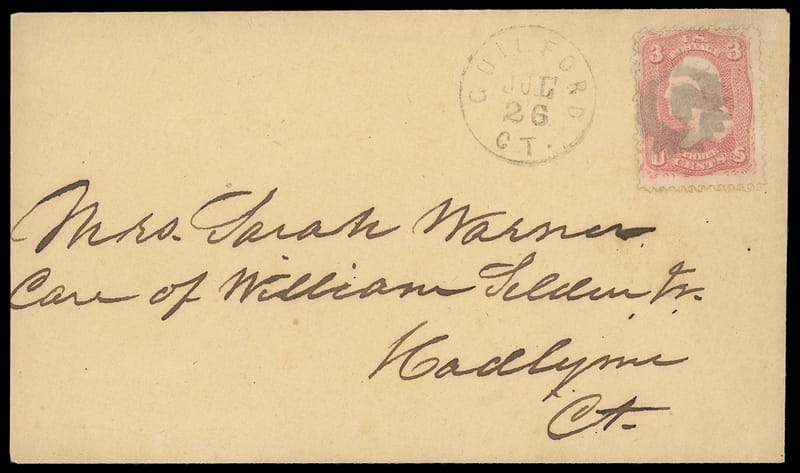 GUILFORD
JUL
26
CT.
3 3
U.S.
POSTAGE
THREE
U CENTS S
Mrs. Sarah Warner
Care of William Selden Jr.
Hadlyme
Ct.